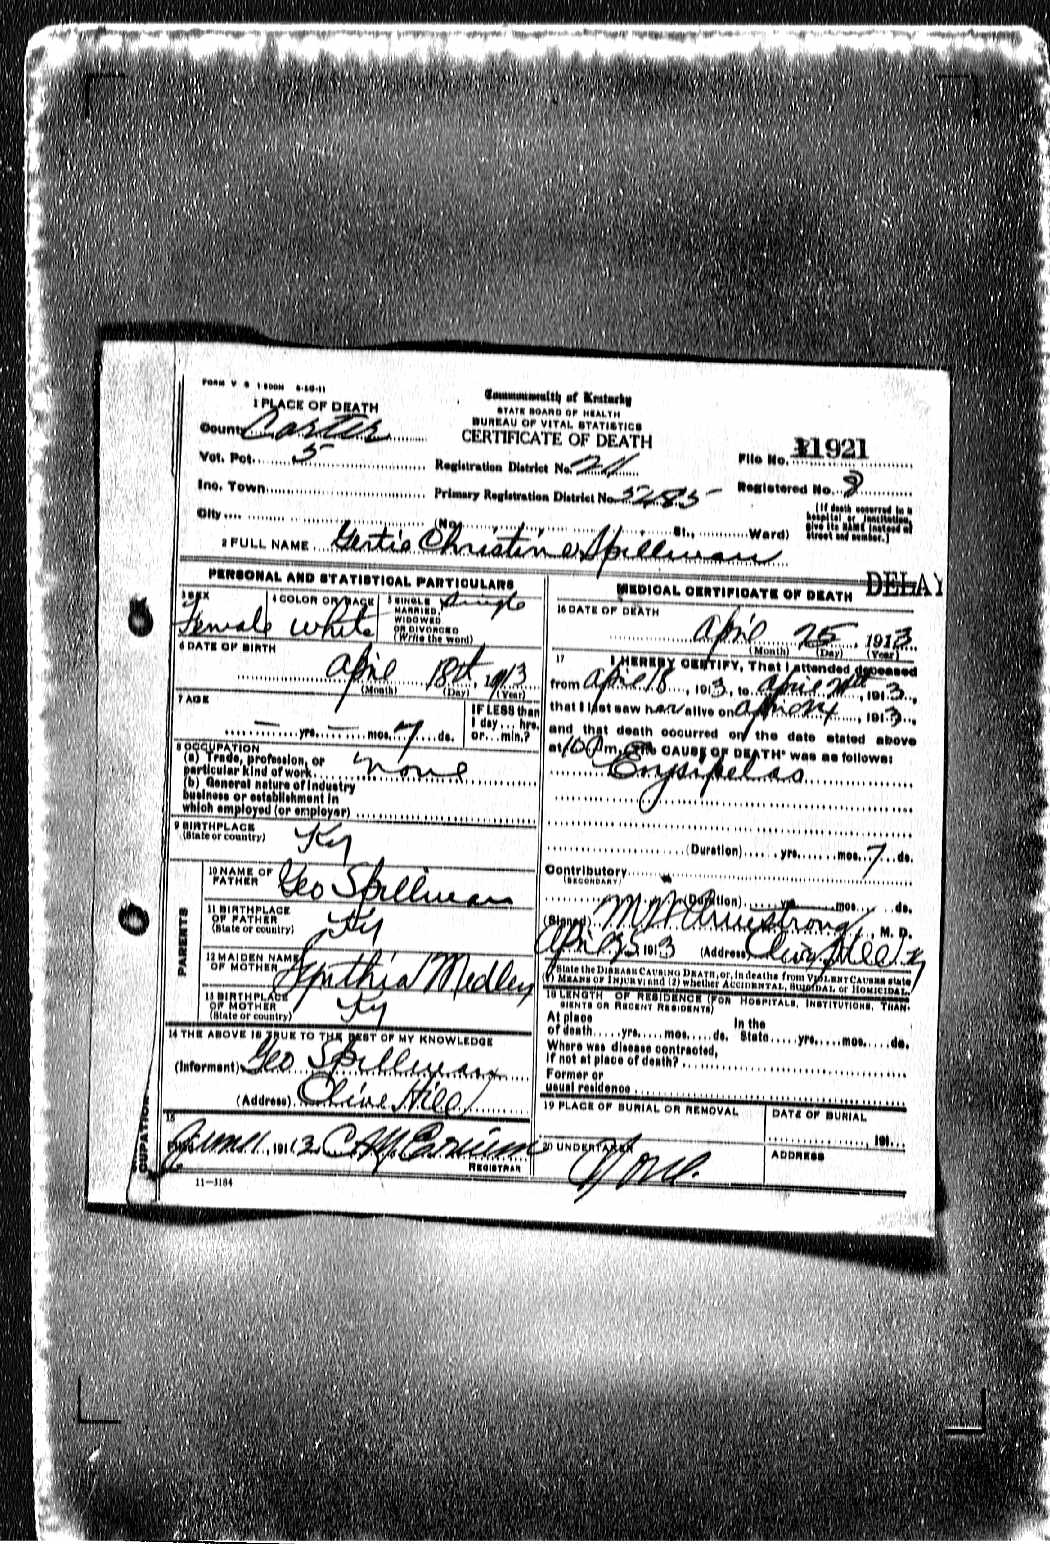 FORM V S 1 500M 5-10-11
1 PLACE OF DEATH
Commonwealth of Kentucky
STATE BOARD OF HEALTH
BUREAU OF VITAL STATISTICS
CERTIFICATE OF DEATH
County Carter
Vot. Pct. 5
Registration District No.
File No. 11921
Inc. Town
Primary Registration District No.
Registered No. 8
City
(No. St., Ward)
[If death occurred in a hospital or institution, give its NAME instead of street and number.]
2 FULL NAME Gertie Christine Spillman
DELAY
PERSONAL AND STATISTICAL PARTICULARS
3 SEX Female
4 COLOR OR RACE White
5 SINGLE, MARRIED, WIDOWED OR DIVORCED (Write the word) Single
6 DATE OF BIRTH
April 18th, 1913
(Month) (Day) (Year)
7 AGE
— yrs. — mos. 7 ds.
IF LESS than 1 day... hrs. or... min.?
8 OCCUPATION
(a) Trade, profession, or particular kind of work none
(b) General nature of industry business or establishment in which employed (or employer)
9 BIRTHPLACE (State or country) Ky
PARENTS
10 NAME OF FATHER Geo Spillman
11 BIRTHPLACE OF FATHER (State or country) Ky
12 MAIDEN NAME OF MOTHER Synthia Medley
13 BIRTHPLACE OF MOTHER (State or country) Ky
14 THE ABOVE IS TRUE TO THE BEST OF MY KNOWLEDGE
(Informant) Geo Spillman
(Address) Olive Hill
15
191
REGISTRAR
11-3184
MEDICAL CERTIFICATE OF DEATH
16 DATE OF DEATH
April 25, 1913
(Month) (Day) (Year)
17 I HEREBY CERTIFY, That I attended deceased
from April 18, 1913, to April, 1913,
that I last saw her alive on, 1913,
and that death occurred on the date stated above
at 10 Pm. The CAUSE OF DEATH* was as follows:
Erysipelas
(Duration) yrs. mos. 7 ds.
Contributory
(SECONDARY)
(Duration) yrs. mos. ds.
(Signed) Armstrong, M. D.
Apr 25 1913 (Address) Olive Hill Ky
State the DISEASE CAUSING DEATH, or, in deaths from VIOLENT CAUSES state
(1) MEANS OF INJURY; and (2) whether ACCIDENTAL, SUICIDAL or HOMICIDAL.
18 LENGTH OF RESIDENCE (FOR HOSPITALS, INSTITUTIONS, TRANSIENTS OR RECENT RESIDENTS)
At place of death yrs. mos. ds. In the State yrs. mos. ds.
Where was disease contracted,
if not at place of death?
Former or
usual residence
19 PLACE OF BURIAL OR REMOVAL
DATE OF BURIAL
, 191
20 UNDERTAKER
None
ADDRESS